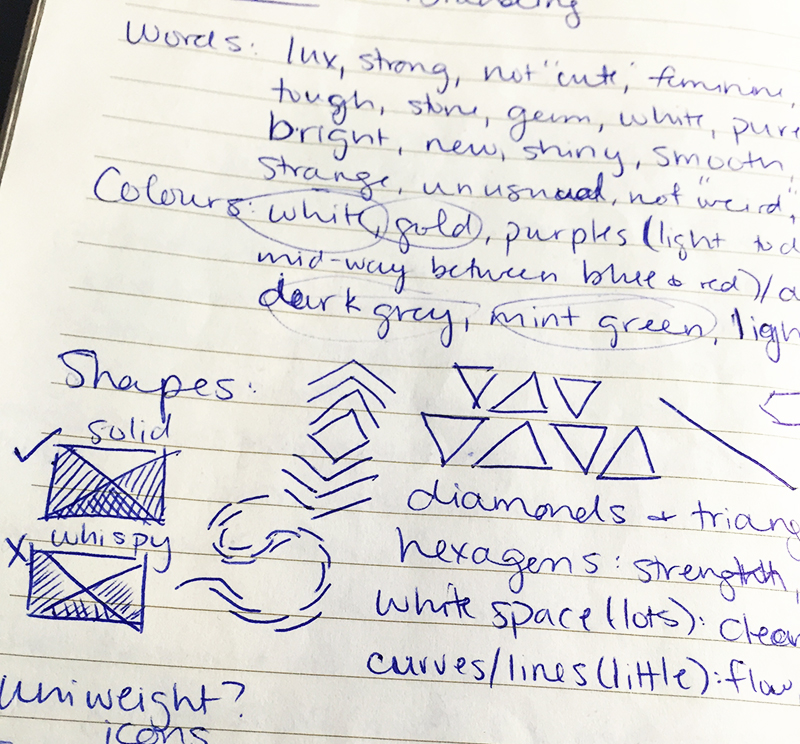 Words: lux, strong, not "cute", feminine,
tough, stone, gem, white, pure
bright, new, shiny, smooth,
strange, unusual, not "weird",
Colours: white, gold, purples (light to d
mid-way between blue & red)/
dark grey, mint green, ligh
Shapes:
solid
whispy
diamonds & triang
hexagens: strength,
white space (lots): clean
curves/lines (little): flow,
uniweight?
icons